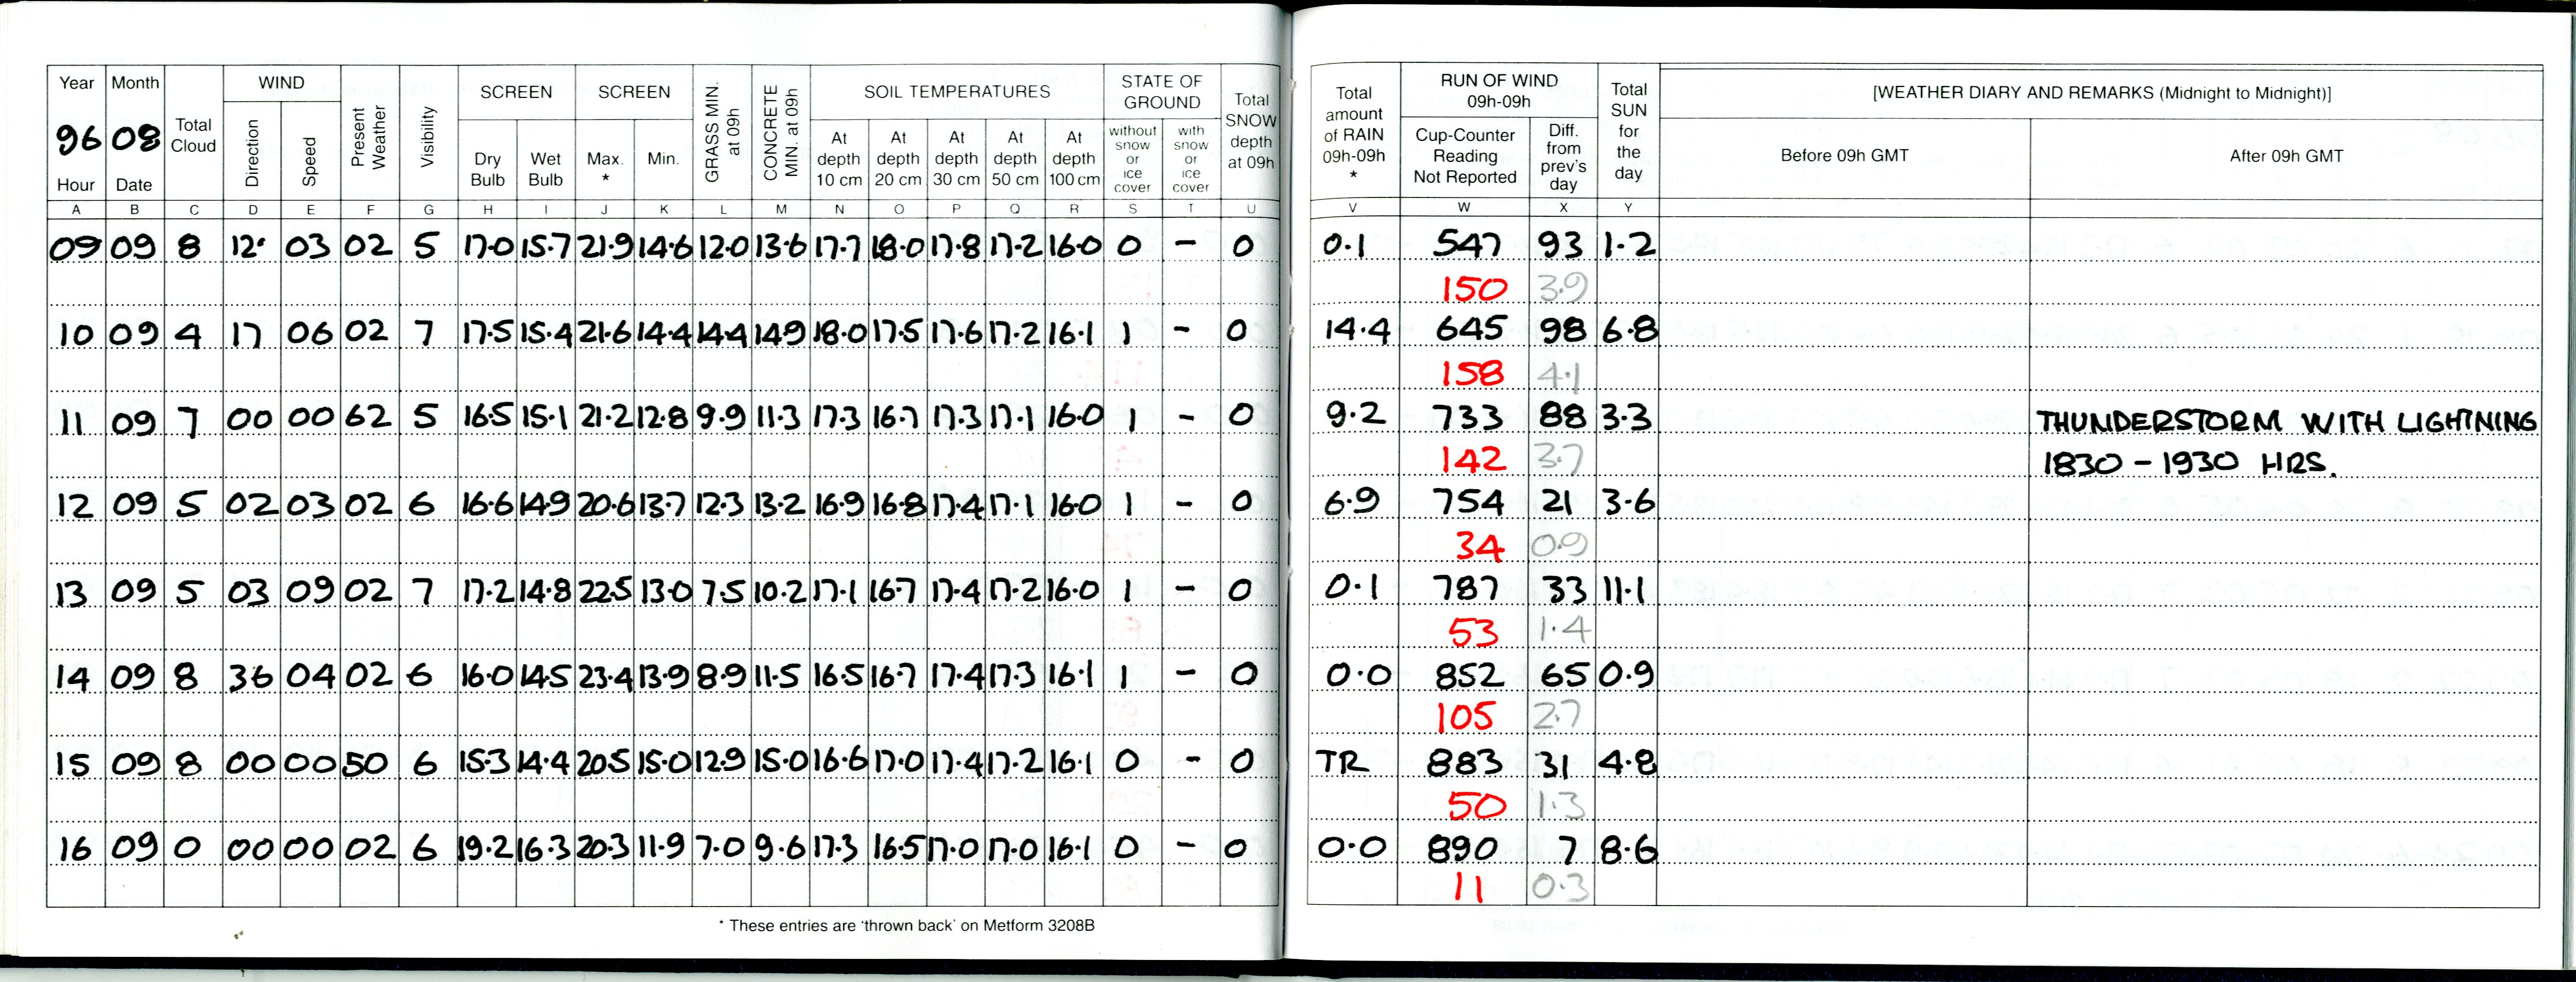 Year Month Total Cloud WIND Present Weather Visibility SCREEN SCREEN GRASS MIN. at 09h CONCRETE MIN. at 09h SOIL TEMPERATURES STATE OF GROUND Total SNOW depth at 09h Total amount of RAIN 09h-09h * RUN OF WIND 09h-09h Total SUN for the day [WEATHER DIARY AND REMARKS (Midnight to Midnight)]
96 08 Direction Speed Dry Bulb Wet Bulb Max. * Min. At depth 10 cm At depth 20 cm At depth 30 cm At depth 50 cm At depth 100 cm without snow or ice cover with snow or ice cover Cup-Counter Reading Not Reported Diff. from prev's day Before 09h GMT After 09h GMT
Hour Date
A B C D E F G H I J K L M N O P Q R S T U V W X Y
09 09 8 12· 03 02 5 17·0 15·7 21·9 14·6 12·0 13·6 17·7 18·0 17·8 17·2 16·0 0 – 0 0·1 547 93 1·2
150 3·9
10 09 4 17 06 02 7 17·5 15·4 21·6 14·4 14·4 14·9 18·0 17·5 17·6 17·2 16·1 1 – 0 14·4 645 98 6·8
158 4·1
11 09 7 00 00 62 5 16·5 15·1 21·2 12·8 9·9 11·3 17·3 16·7 17·3 17·1 16·0 1 – 0 9·2 733 88 3·3 THUNDERSTORM WITH LIGHTNING
142 3·7 1830 – 1930 HRS.
12 09 5 02 03 02 6 16·6 14·9 20·6 13·7 12·3 13·2 16·9 16·8 17·4 17·1 16·0 1 – 0 6·9 754 21 3·6
34 0·9
13 09 5 03 09 02 7 17·2 14·8 22·5 13·0 7·5 10·2 17·1 16·7 17·4 17·2 16·0 1 – 0 0·1 787 33 11·1
53 1·4
14 09 8 36 04 02 6 16·0 14·5 23·4 13·9 8·9 11·5 16·5 16·7 17·4 17·3 16·1 1 – 0 0·0 852 65 0·9
105 2·7
15 09 8 00 00 50 6 15·3 14·4 20·5 15·0 12·9 15·0 16·6 17·0 17·4 17·2 16·1 0 – 0 TR 883 31 4·8
50 1·3
16 09 0 00 00 02 6 19·2 16·3 20·3 11·9 7·0 9·6 17·3 16·5 17·0 17·0 16·1 0 – 0 0·0 890 7 8·6
11 0·3
* These entries are 'thrown back' on Metform 3208B